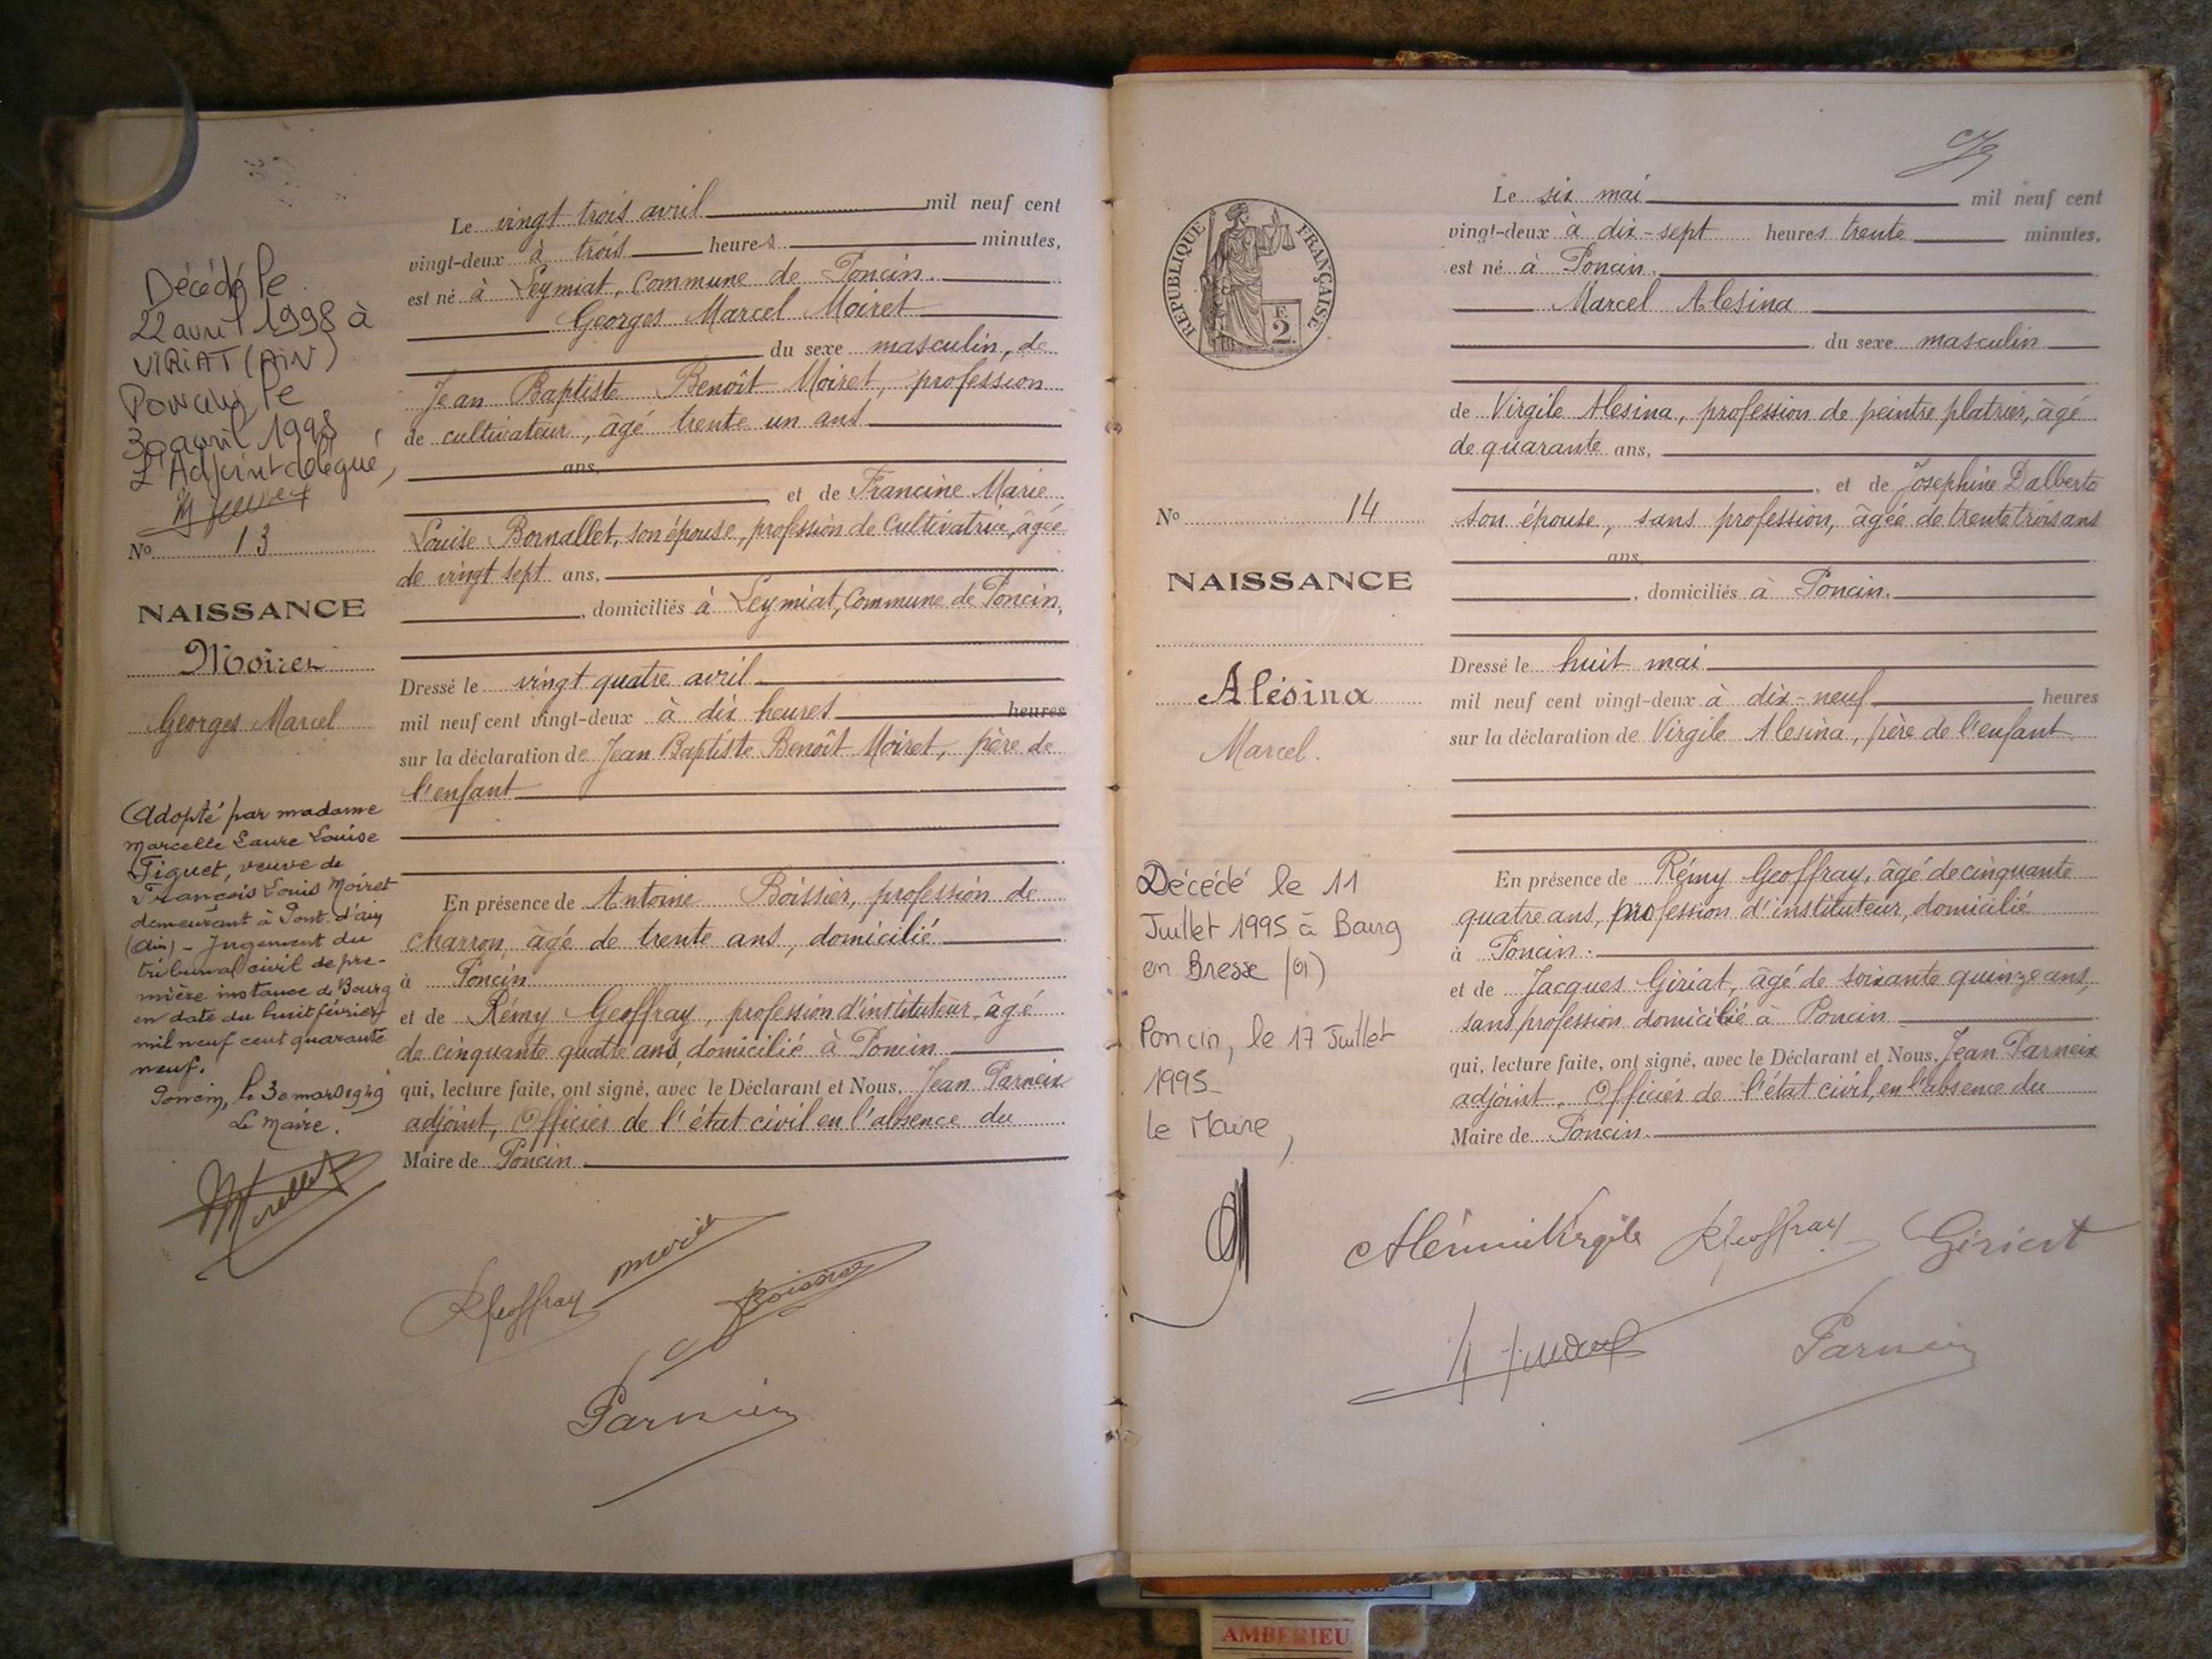 Décédé le
22 avril 1998 à
VIRIAT (AIN)
Poncin, le
30 avril 1998
L'Adjint délégué,
No 13
NAISSANCE
Moiret
Georges Marcel
Adopté par madame
Marcelle Laure Louise
Figuet, veuve de
François Louis Moiret
demeurant à Pont d'ain
(Ain) - Jugement du
tribunal civil de pre-
mière instance de Bourg
en date du huit février
mil neuf cent quarante
neuf.
Poncin, le 30 mars 1949
Le Maire.
Le vingt trois avril mil neuf cent
vingt-deux à trois heures minutes,
est né à Leymiat, Commune de Poncin.
Georges Marcel Moiret
du sexe masculin, de
Jean Baptiste Benoît Moiret, profession
de cultivateur, âgé trente un ans
ans,
et de Francine Marie
Louise Bornallet, son épouse, profession de Cultivatrice, âgée
de vingt sept ans,
, domiciliés à Leymiat, Commune de Poncin,
Dressé le vingt quatre avril
mil neuf cent vingt-deux à dix heures heures
sur la déclaration de Jean Baptiste Benoît Moiret, père de
l'enfant
En présence de Antoine Boissier, profession de
charron, âgé de trente ans, domicilié
à Poncin
et de Rémy Geoffray, profession d'instituteur, âgé
de cinquante quatre ans, domicilié à Poncin
qui, lecture faite, ont signé, avec le Déclarant et Nous, Jean Parneix
adjoint, Officier de l'état civil en l'absence du
Maire de Poncin
RGeoffray
Boissier
Parneix
RÉPUBLIQUE FRANÇAISE
2
No 14
NAISSANCE
Alésina
Marcel.
Décédé le 11
Juillet 1995 à Bourg
en Bresse (01)
Poncin, le 17 Juillet
1995_
Le Maire,
Le six mai mil neuf cent
vingt-deux à dix-sept heures trente minutes,
est né à Poncin.
Marcel Alesina
du sexe masculin
de Virgile Alesina, profession de peintre platrier, âgé
de quarante ans,
, et de Josephine Dalberto
son épouse, sans profession, âgée de trente trois ans
ans,
, domiciliés à Poncin.
Dressé le huit mai
mil neuf cent vingt-deux à dix-neuf heures
sur la déclaration de Virgile Alesina, père de l'enfant
En présence de Rémy Geoffray, âgé de cinquante
quatre ans, profession d'instituteur, domicilié
à Poncin.
et de Jacques Giriat, âgé de soixante quinze ans,
sans profession domicilié à Poncin
qui, lecture faite, ont signé, avec le Déclarant et Nous, Jean Parneix
adjoint, Officier de l'état civil, en l'absence du
Maire de Poncin.
Alésina Virgile RGeoffray Giriat
Parneix
AMBERIEU